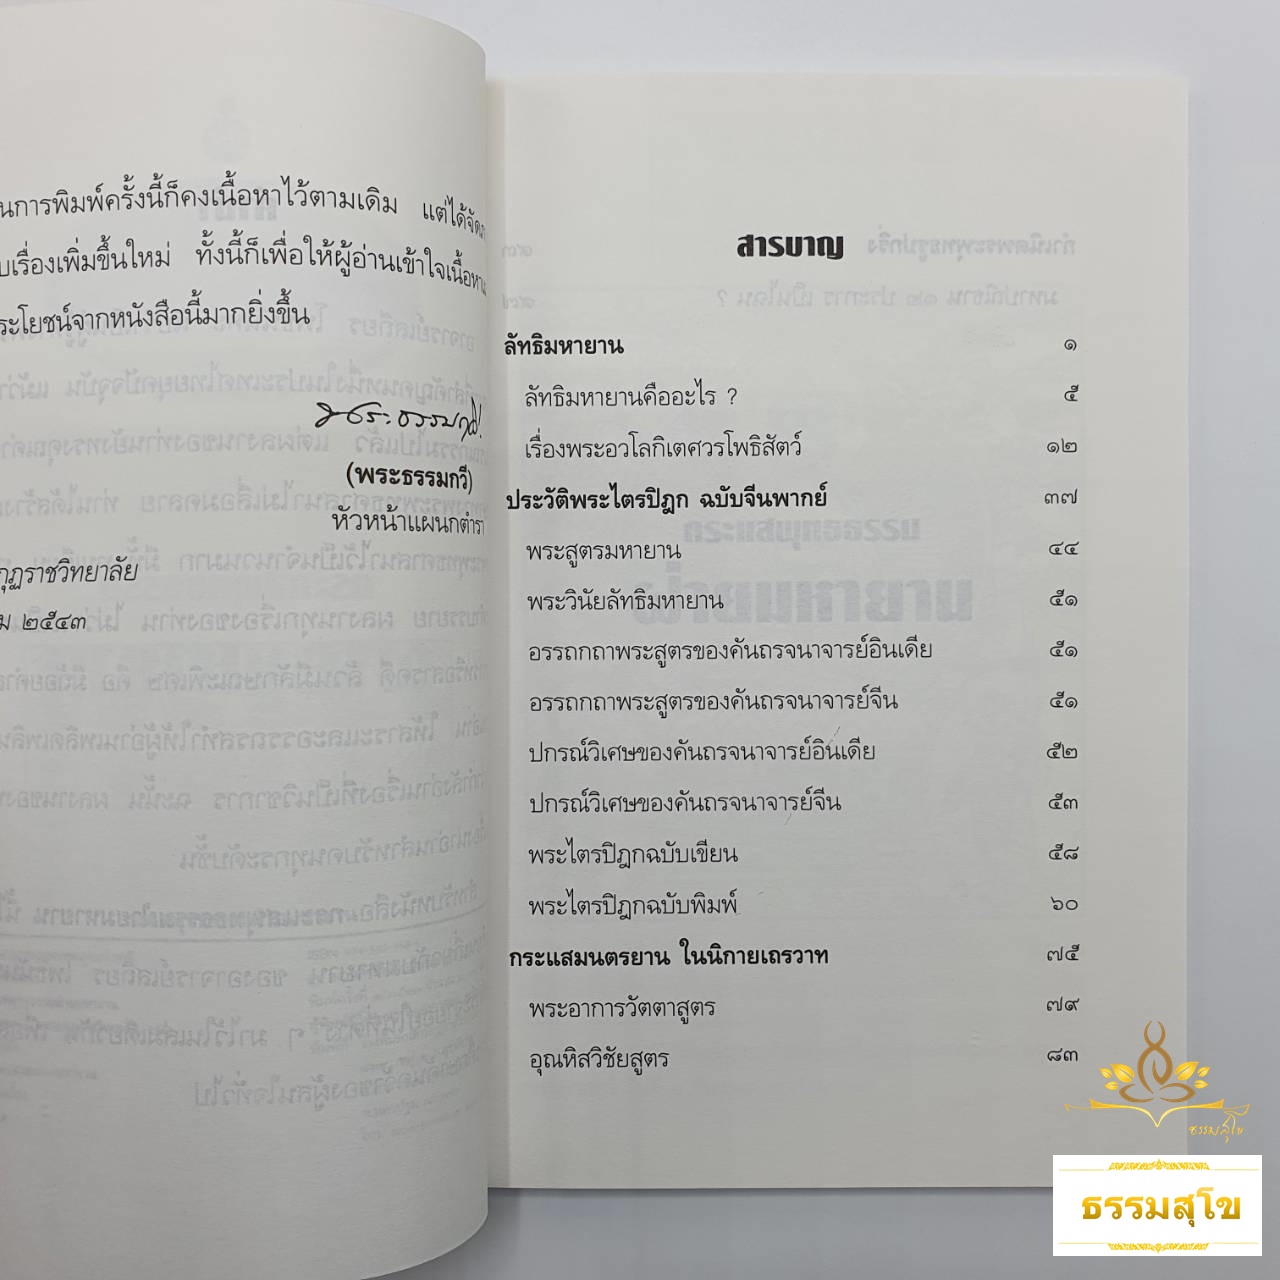 นการพิมพ์ครั้งนี้ก็คงเนื้อหาไว้ตามเดิม แต่ได้จัด
บเรื่องเพิ่มขึ้นใหม่ ทั้งนี้ก็เพื่อให้ผู้อ่านเข้าใจเนื้อหา
ระโยชน์จากหนังสือนี้มากยิ่งขึ้น
(พระธรรมกวี)
หัวหน้าแผนกตำรา
กุฏราชวิทยาลัย
ม ๒๕๔๓
สารบาญ
ลัทธิมหายาน ๑
ลัทธิมหายานคืออะไร ? ๕
เรื่องพระอวโลกิเตศวรโพธิสัตว์ ๑๒
ประวัติพระไตรปิฎก ฉบับจีนพากย์ ๓๗
พระสูตรมหายาน ๔๔
พระวินัยลัทธิมหายาน ๕๑
อรรถกถาพระสูตรของคันถรจนาจารย์อินเดีย ๕๑
อรรถกถาพระสูตรของคันถรจนาจารย์จีน ๕๑
ปกรณ์วิเศษของคันถรจนาจารย์อินเดีย ๕๒
ปกรณ์วิเศษของคันถรจนาจารย์จีน ๕๓
พระไตรปิฎกฉบับเขียน ๕๘
พระไตรปิฎกฉบับพิมพ์ ๖๐
กระแสมนตรยาน ในนิกายเถรวาท ๗๕
พระอาการวัตตาสูตร ๗๙
อุณหิสวิชัยสูตร ๘๓
ธรรมสุโข
ธรรมสุโข